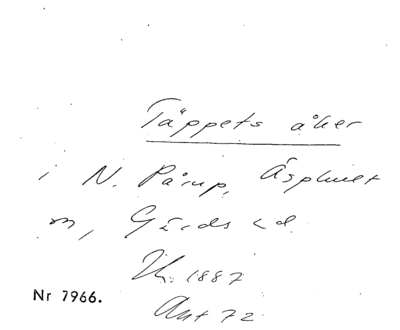 Täppets åker
i N. Pårup, Äsphult
m, Gärds hd.
1887
Nr 7966.
Akt 72